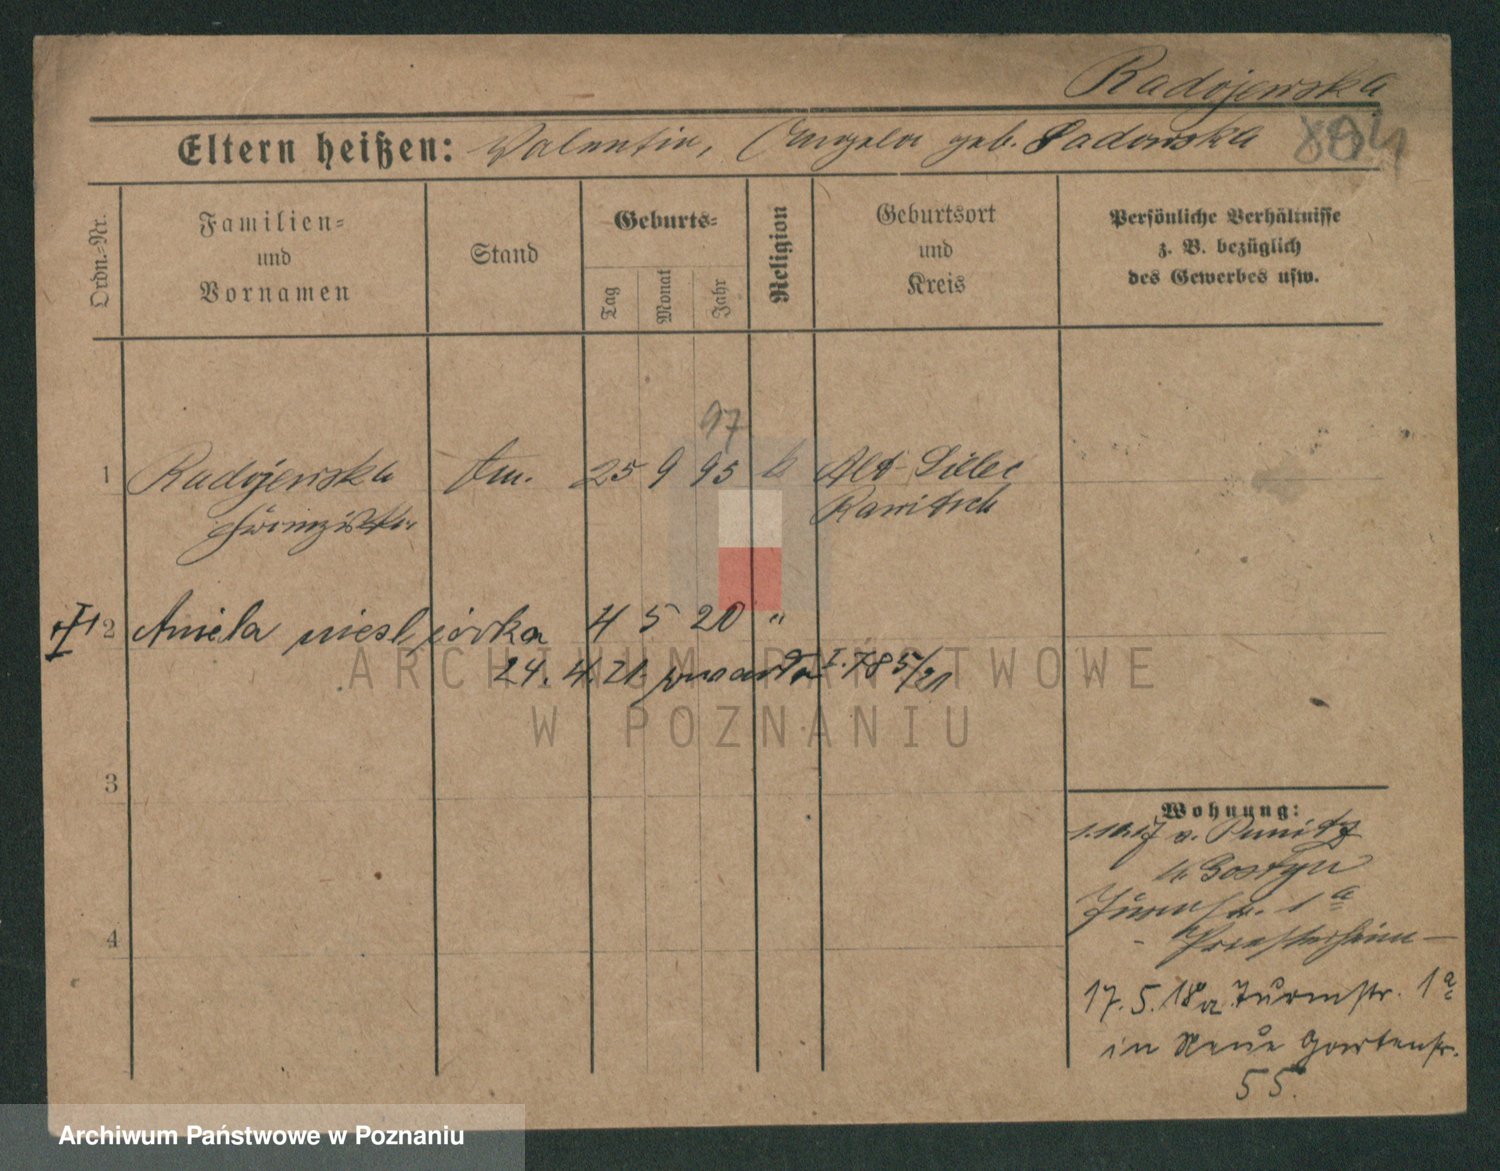 Radojewska
Eltern heißen: Valentin, Angela geb. Sadowska 884
Ordn.-Nr.
Familien-
und
Vornamen
Stand
Geburts-
Tag
Monat
Jahr
Religion
Geburtsort
und
Kreis
Persönliche Verhältnisse
z. B. bezüglich
des Gewerbes usw.
97
1 Radojewska 25 9 95 k Alt-
Rawitsch
2 Aniela nieśl. córka 4 5 20 "
24. 4. 21. zmarła I. 785/21
ARCHIWUM PAŃSTWOWE
W POZNANIU
3
4
Wohnung:
1.10.17 v. Punitz
Kr. Gostyn
Turmstr. 1a
- Priesterheim -
17. 5. 18 a Turmstr. 1a
in Neue Gartenstr.
55.
Archiwum Państwowe w Poznaniu